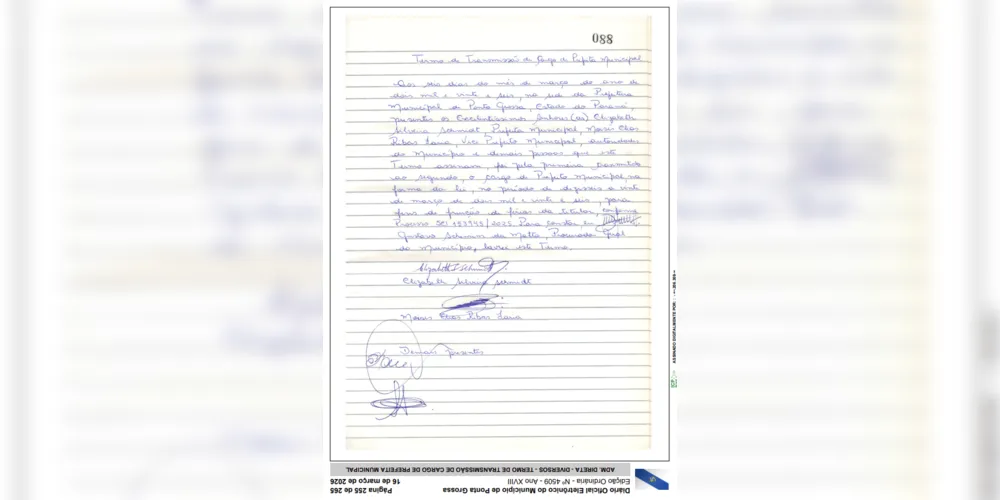 088
Termo de Transmissão de Cargo de Prefeito Municipal
Aos seis dias do mês de março do ano de
dois mil e vinte e seis, na sede da Prefeitura
Municipal de Ponta Grossa, Estado do Paraná,
presentes os Excelentíssimos Senhores (as) Elizabeth
Silveira Schmidt, Prefeita Municipal, Moisés
Ribas, Vice Prefeito Municipal, autoridades
do Município e demais pessoas que este
Termo assinam, foi pela primeira transmitido
ao segundo, o cargo de Prefeito Municipal, na
forma da lei, no período de dezesseis a vinte
de março de dois mil e vinte e seis, para
fins de fruição de férias da titular, conforme
Processo SEI /2025. Para constar eu
Gustavo da Matta, Procurador Geral
do Município, lavrei este Termo.
Elizabeth Silveira Schmidt
Ribas
Demais Presentes
ASSINADO DIGITALMENTE POR:
ADM. DIRETA - DIVERSOS - TERMO DE TRANSMISSÃO DE CARGO DE PREFEITA MUNICIPAL
Edição Ordinária - Nº 4509 - Ano XVIII
16 de março de 2026
Diário Oficial Eletrônico do Município de Ponta Grossa
Página 255 de 265